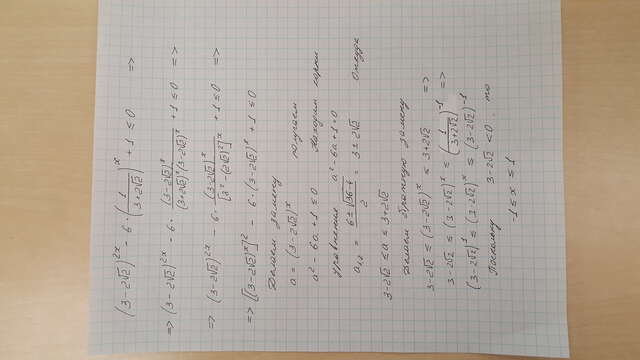 (3-2√2)^2x - 6·(1/(3+2√2))^x + 1 ≤ 0 =>
=> (3-2√2)^2x - 6·(3-2√2)^x/((3+2√2)^x(3-2√2)^x) + 1 ≤ 0 =>
=> (3-2√2)^2x - 6·(3-2√2)^x/[3²-(2√2)²]^x + 1 ≤ 0 =>
=> [(3-2√2)^x]² - 6·(3-2√2)^x + 1 ≤ 0
Делаем замену
a = (3-2√2)^x получаем
a² - 6a + 1 ≤ 0 Находим корни
уравнения a² - 6a + 1 = 0
a₁,₂ = (6±√(36-4))/2 = 3±2√2 Откуда
3-2√2 ≤ a ≤ 3+2√2
Делаем обратную замену
3-2√2 ≤ (3-2√2)^x ≤ 3+2√2 =>
3-2√2 ≤ (3-2√2)^x ≤ (1/(3+2√2))^-1 =>
(3-2√2)^1 ≤ (3-2√2)^x ≤ (3-2√2)^-1
Поскольку 3-2√2 < 0, то
-1 ≤ x ≤ 1